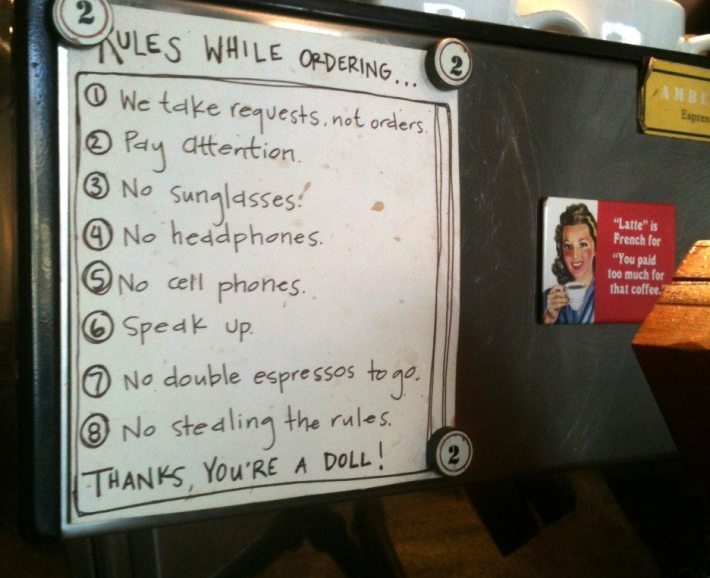 2
RULES WHILE ORDERING...
2
① We take requests, not orders.
② Pay attention.
③ No sunglasses!
④ No headphones.
⑤ No cell phones.
⑥ Speak up.
⑦ No double espressos to go.
⑧ No stealing the rules.
THANKS, YOU'RE A DOLL!
2
"Latte" is
French for
"You paid
too much for
that coffee."